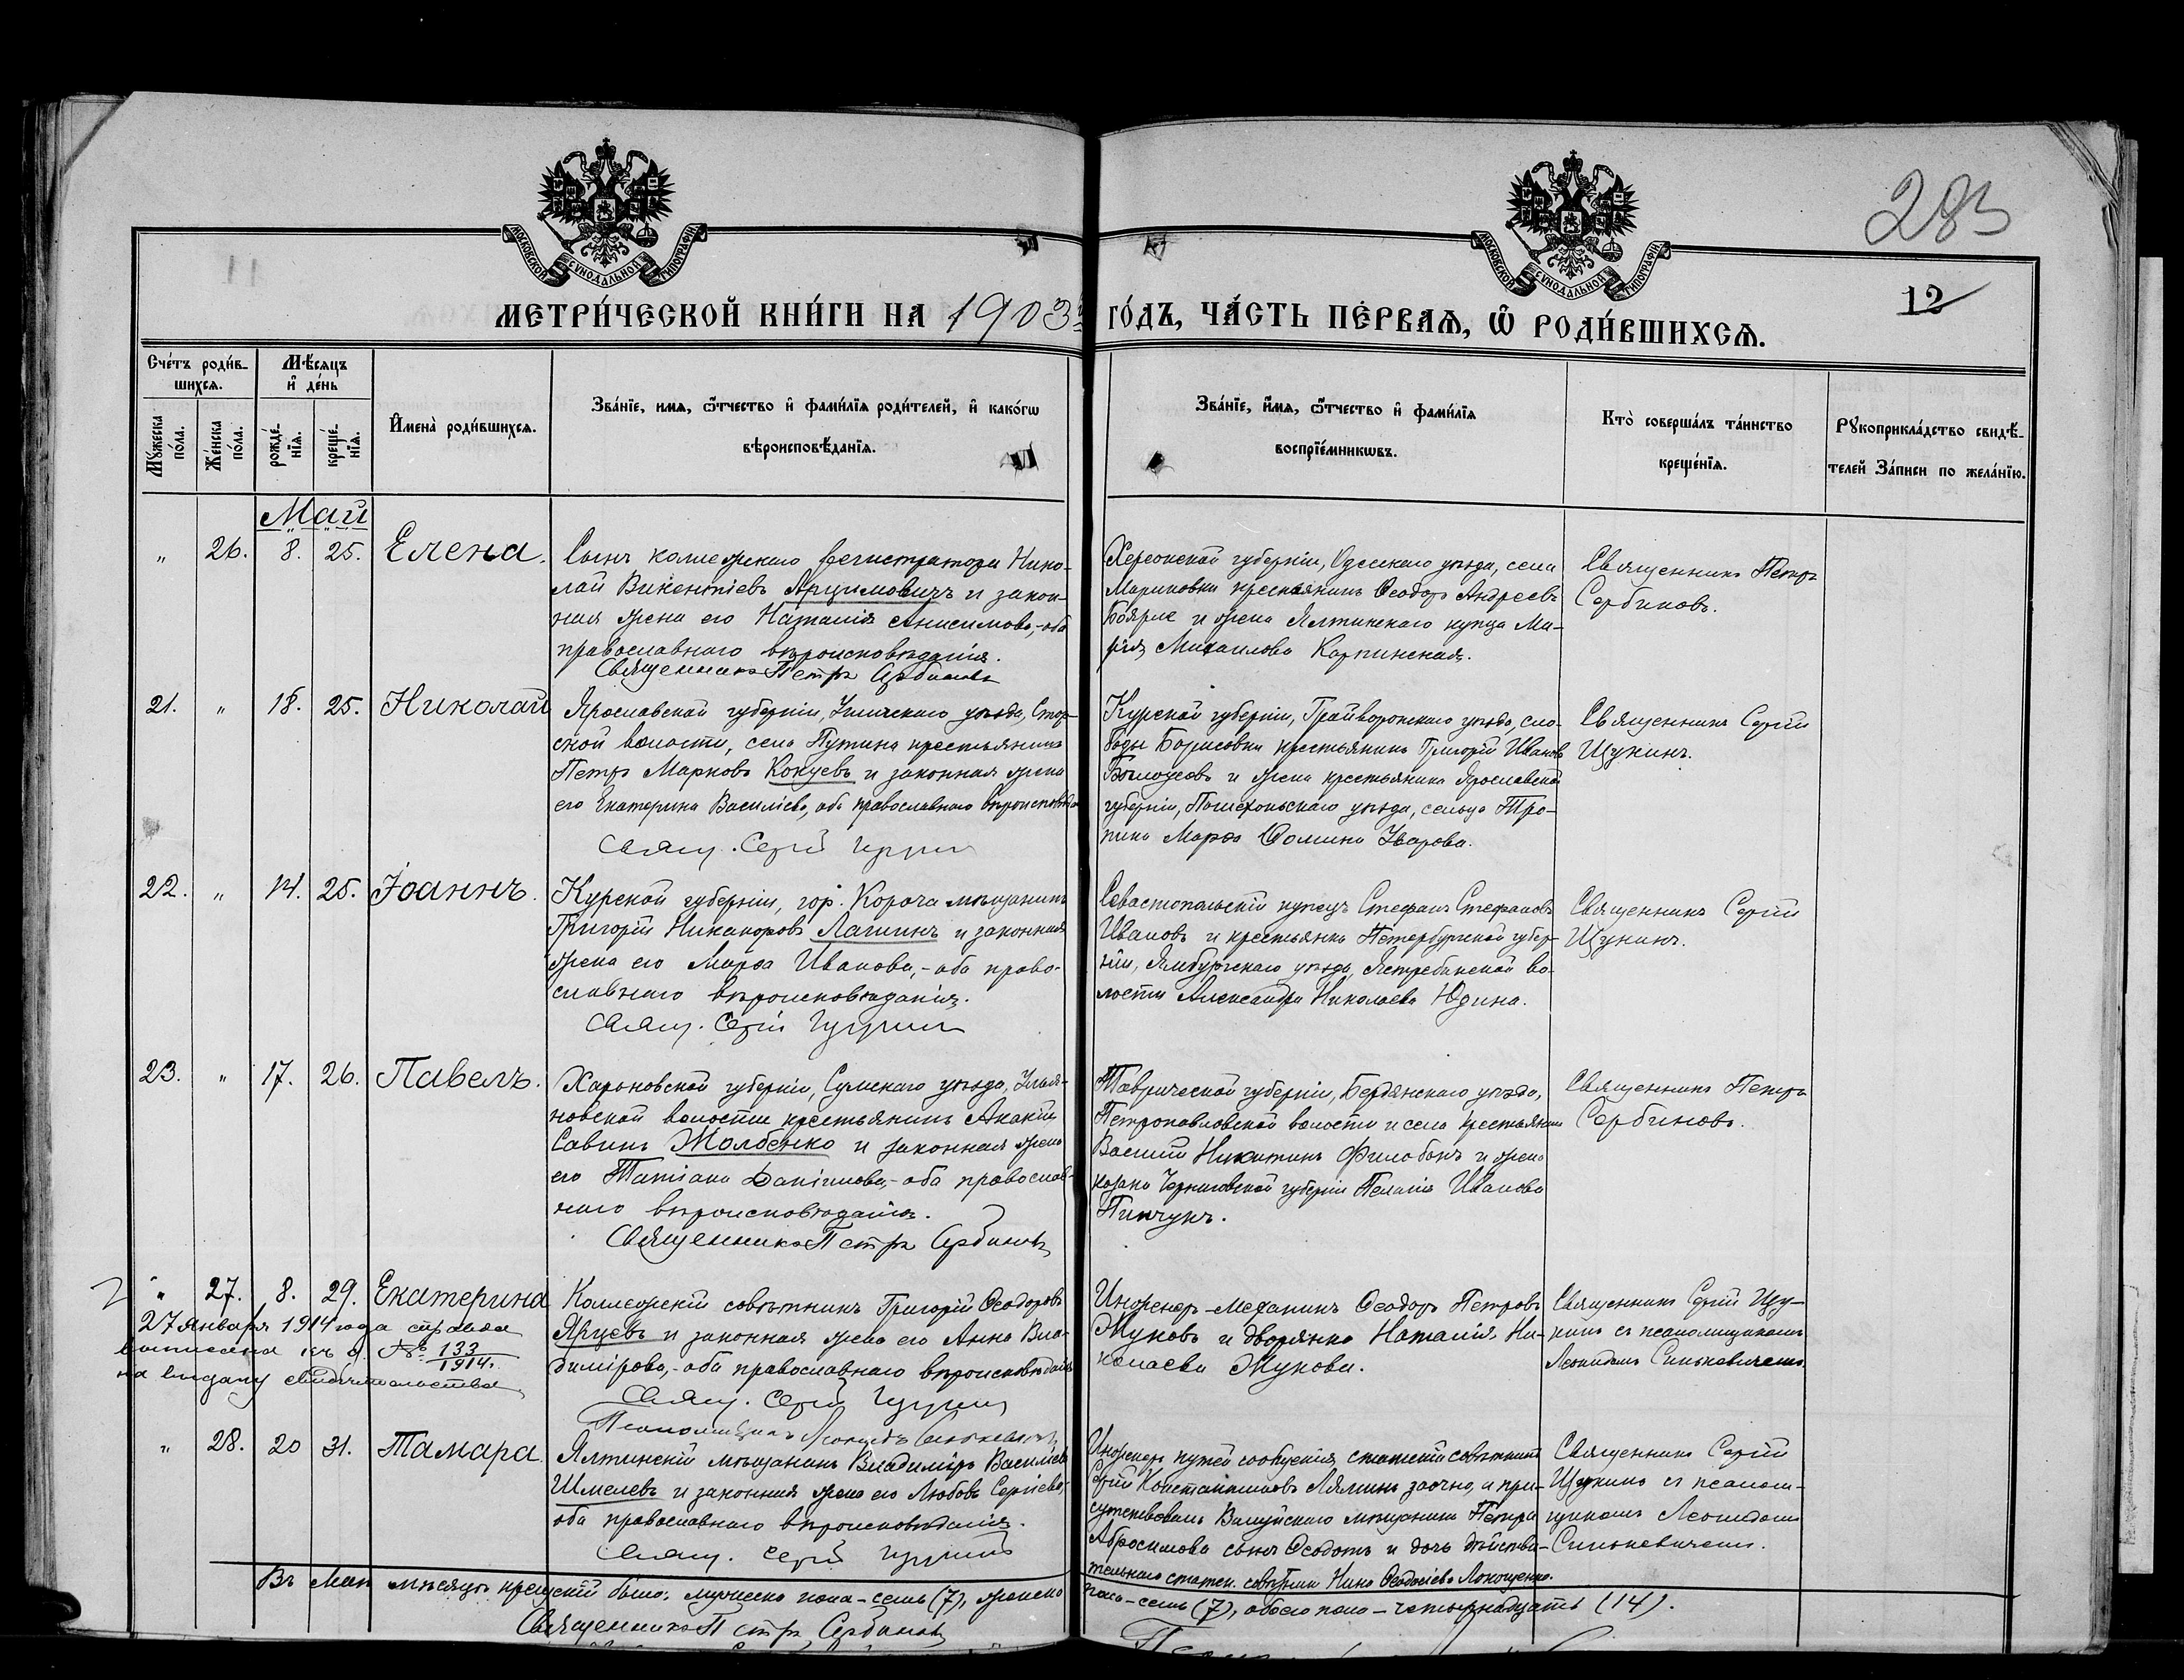 283
12
МОСКОВСКОЙ СѴНОДАЛЬНОЙ ТИПОГРАФІИ
МОСКОВСКОЙ СѴНОДАЛЬНОЙ ТИПОГРАФІИ
МЕТРИ́ЧЕСКОЙ КНИ́ГИ НА 1903й ГО́ДЪ, ЧА́СТЬ ПЕ́РВАѦ, Ѽ РОДИ́ВШИХСѦ.
Сче́тъ роди́в-
шихсѧ.
Мѣ́сяцъ
и҆ де́нь
Мꙋ́жеска по́ла.
Же́нска по́ла.
рожде́-
нїѧ.
креще́-
нїѧ.
И҆мена̀ роди́вшихсѧ.
Зва́нїе, имѧ, ѻ҆́тчество и҆ фамѝлїѧ роди́телей, и҆ како́гѡ
вѣроисповѣ́данїѧ.
Зва́нїе, и҆́мѧ, ѻ҆́тчество и҆ фамѝлїѧ
воспрїе́мникѡвъ.
Кто̀ соверша́лъ та́инство
креще́нїѧ.
Рꙋкоприкла́дство свидѣ́-
телей За́писи по жела́нїю.
Май
" 26. 8. 25. Елена.
Сынъ коллежскаго регистратора Нико-
лай Викентіевъ Арцимовичъ и закон-
ная жена его Наталія Анисимова,-оба
православнаго вѣроисповѣданія.
Священникъ Петръ Сербиновъ
Херсонской губерніи, Одесскаго уѣзда, села
Мариновки крестьянинъ Ѳеодоръ Андреевъ
Боярже и жена Ялтинскаго купца Ма-
рія Михаилова Карпинская.
Священникъ Петръ
Сербиновъ.
21. " 18. 25. Николай
Ярославской губерніи, Угличскаго уѣзда,
ской волости, села Путина крестьянинъ
Петръ Марковъ Кокуевъ и законная жена
его Екатерина Васильева, оба православнаго вѣроисповѣда
Свящ. Сергій Щукинъ
Курской губерніи, Грайворонскаго уѣзда, сло-
боды Борисовки крестьянинъ Григорій Ивановъ
Бѣлоусовъ и жена крестьянина Ярославской
губерніи, Пошехонскаго уѣзда, сельца Тро-
пина Марѳа Ѳомина Уварова.
Священникъ Сергій
Щукинъ.
22. " 14. 25. Іоаннъ.
Курской губерніи, гор. Короча мѣщанинъ
Григорій Никаноровъ Лашинъ и законная
жена его Марѳа Иванова,-оба право-
славнаго вѣроисповѣданія.
Свящ. Сергій Щукинъ
Севастопольскій купецъ Стефанъ Стефановъ
Ивановъ и крестьянка Петербургской губер-
ніи, Ямбургскаго уѣзда, Ястребинской во-
лости Александра Николаева Юдина.
Священникъ Сергій
Щукинъ.
23. " 17. 26. Павелъ.
Харьковской губерніи, Сумскаго уѣзда, Улья-
новской волости крестьянинъ Акакій
Савинъ Жолбенко и законная жена
его Татіана Даніилова,-оба православ-
наго вѣроисповѣданія.
Священникъ Петръ Сербиновъ
Таврической губерніи, Бердянскаго уѣзда,
Петропавловской волости и села крестьянинъ
Василій Никитинъ Филобокъ и жена
козака Черниговской губерніи Пелагія Иванова
Пинчукъ.
Священникъ Петръ
Сербиновъ.
" 27. 8. 29. Екатерина
27 января 1914 года справка
выписана къ д. № 133
1914г.
на выдачу свидѣтельства
Коллежскій совѣтникъ Григорій Ѳеодоровъ
Ярцевъ и законная жена его Анна Вла-
диміровa,-оба православнаго вѣроисповѣданія
Свящ. Сергій Щукинъ
Псаломщикъ Леонидъ Синькевичъ
Инженеръ-Механикъ Ѳеодоръ Петровъ
Жуковъ и дворянка Наталія Ни-
колаева Жукова.
Священникъ Сергій Щу-
кинъ съ псаломщикомъ
Леонидомъ Синькевичемъ
" 28. 20 31. Тамара.
Ялтинскій мѣщанинъ Владиміръ Васильевъ
Шмелевъ и законная жена его Любовь Сергіева,
оба православнаго вѣроисповѣданія.
Свящ. Сергій Щукинъ
Инженеръ путей сообщенія, статскій совѣтникъ
Сергій Константиновъ Лямин заочно, и при-
сутствовалъ Валуйскаго мѣщанина Петра
Абросимова сынъ Ѳеодотъ и дочь дѣйстви-
тельнаго статск. совѣтника Нина Ѳеодосіева Локощенко.
Священникъ Сергій
Щукинъ съ псалом-
щикомъ Леонидомъ
Синькевичемъ.
Въ Маѣ мѣсяцѣ крещеній было: мужеска пола-семь (7), женска пола-семь (7), обоего пола-четырнадцать (14).
Священникъ Петръ Сербиновъ